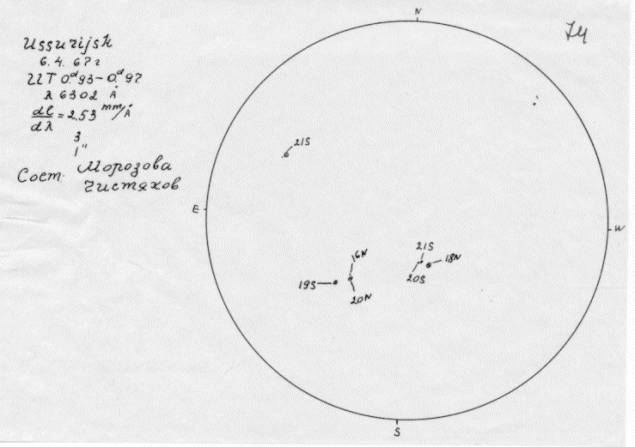 Ussurijsk
6.4.67г
UT 0ᵈ93–0ᵈ97
λ 6302 Å
dl/dλ = 2.53 mm/Å
3
1"
Сост. Морозова
Чистяков
74
N
21S
E
W
21S
16N
18N
19S
20S
20N
S